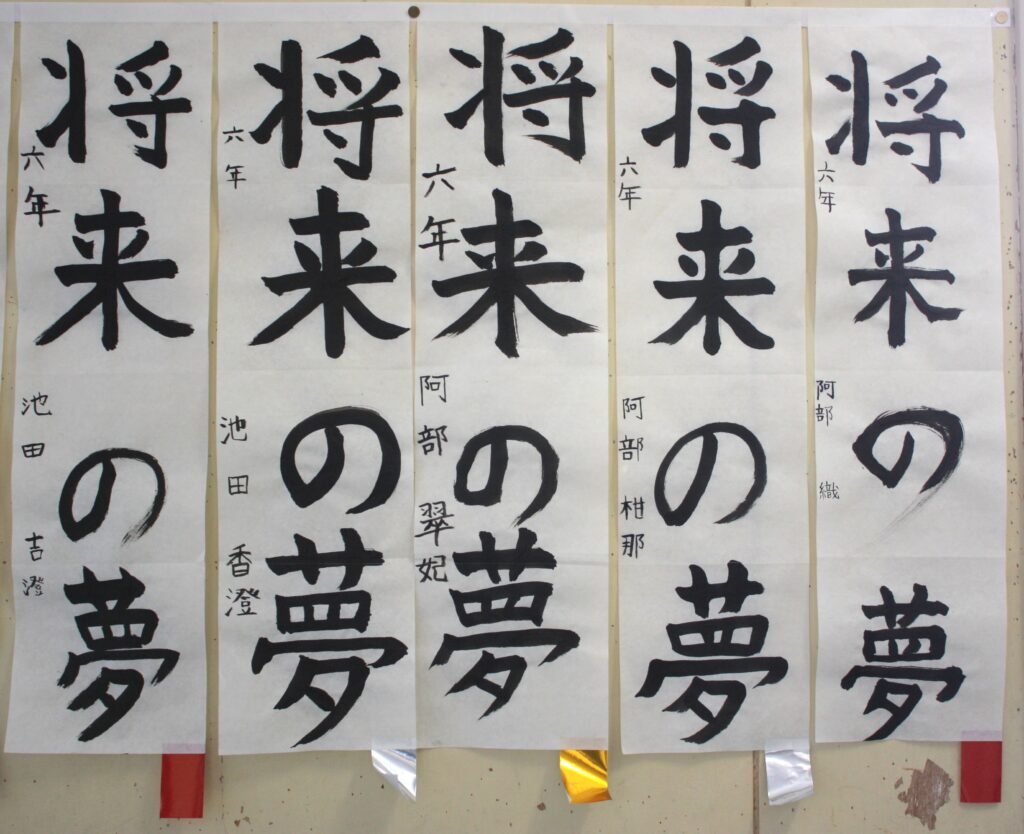 将来の夢
六年 阿部 織
将来の夢
六年 阿部 柑那
将来の夢
六年 阿部 翠妃
将来の夢
六年 池田 香澄
将来の夢
六年 池田 吉澄